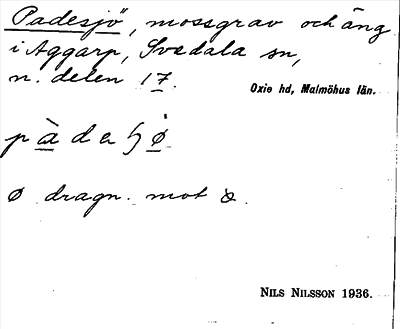 "Padesjö", mossgrav och äng
i Aggarp, Svedala sn,
n. delen 17.
Oxie hd, Malmöhus län.
ø dragn. mot
NILS NILSSON 1936.